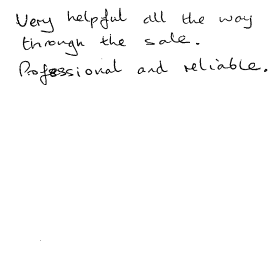 Very helpful all the way
through the sale.
Professional and reliable.